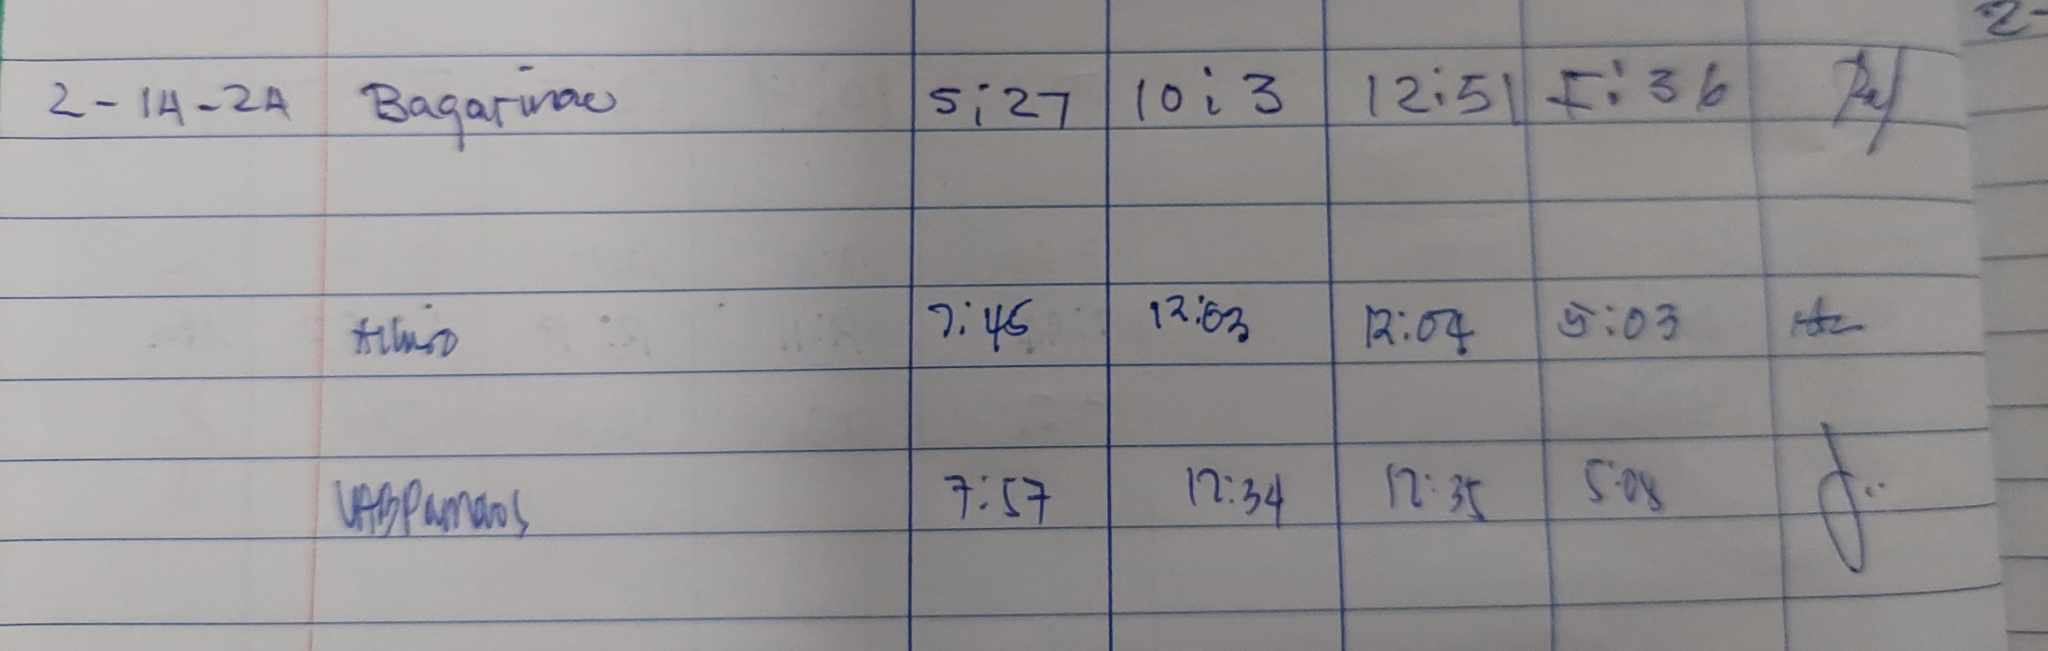 2-
2-14-2A Bagarinao 5:27 10:3 12:51 5:36
7:45 12:03 12:04 5:03
VABPamaos 7:57 12:34 12:35 5:08